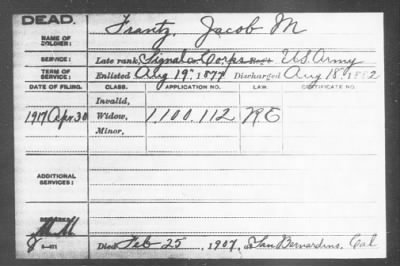 DEAD.
NAME OF SOLDIER: Frantz, Jacob M
SERVICE: Late rank, Signal Corps Reg't U.S. Army
TERM OF SERVICE: Enlisted Aug 19", 1877 Discharged Aug 18", 1882
DATE OF FILING. CLASS. APPLICATION NO. LAW. CERTIFICATE NO.
Invalid,
1917 Apr 30 Widow, 1.100.112
Minor,
ADDITIONAL SERVICES:
REMARKS:
Died Feb 25, 1907, at San Bernardino, Cal